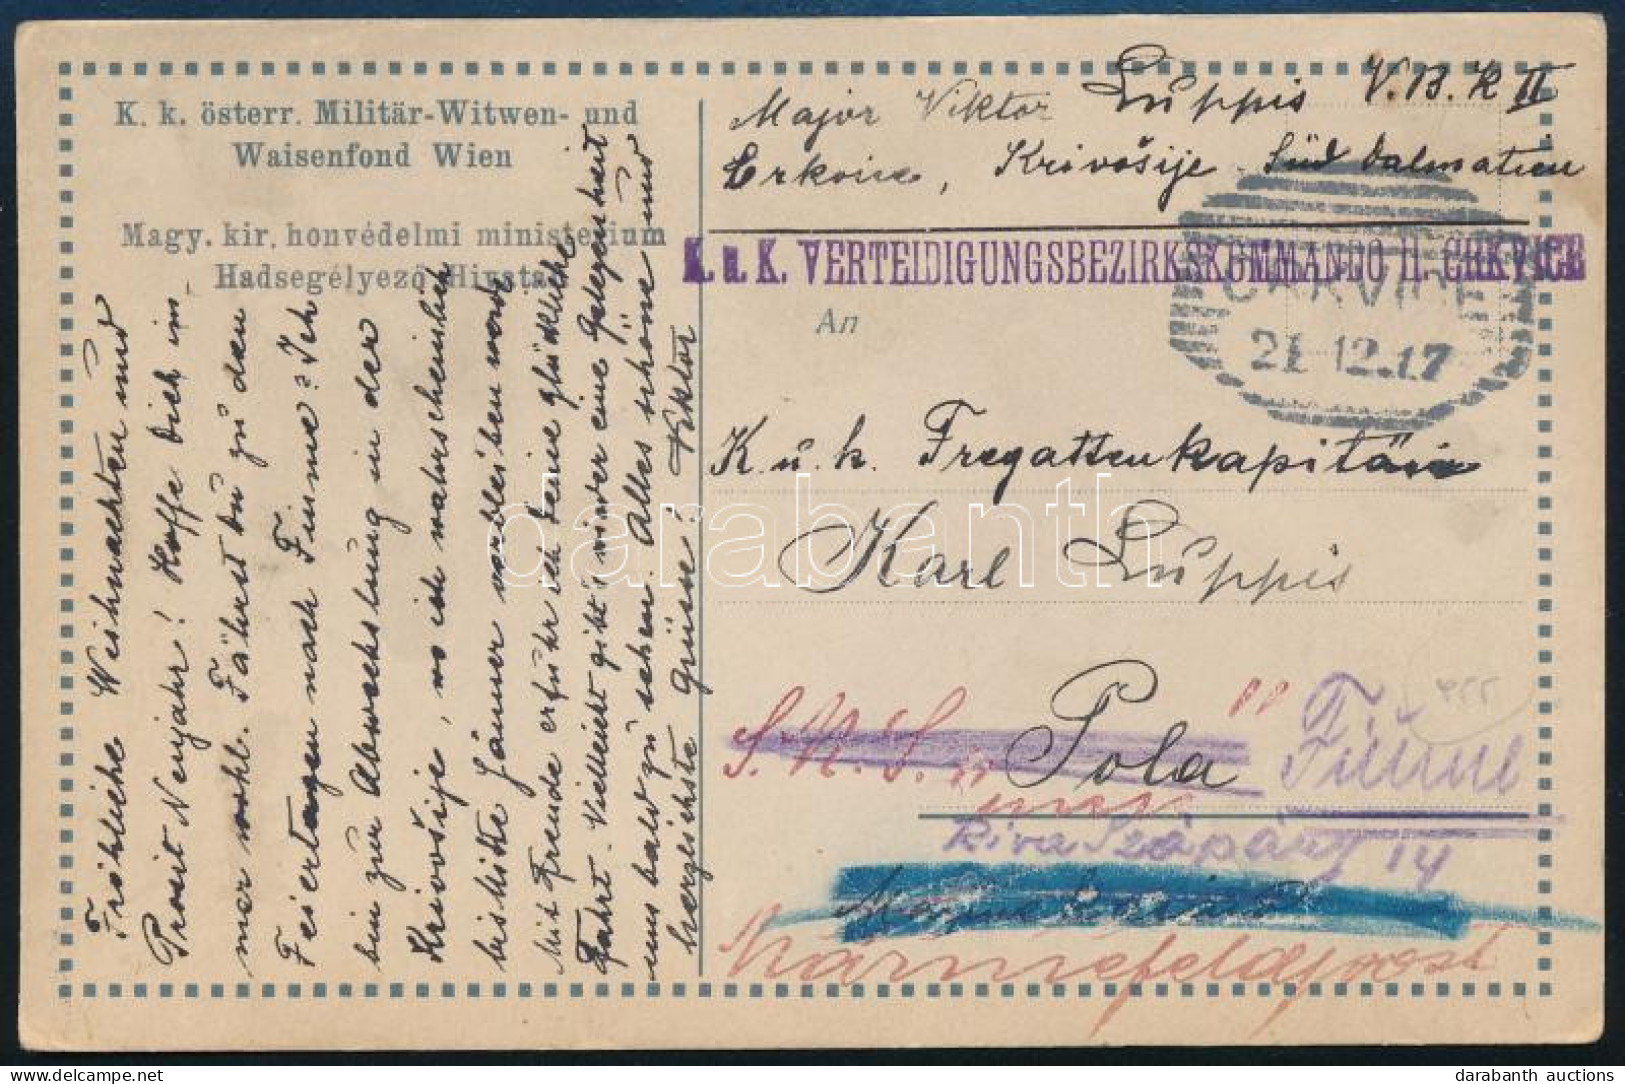 K. k. österr. Militär-Witwen- und
Waisenfond Wien
Magy. kir. honvédelmi ministerium
Hadsegélyező Hivatal
Fröhliche Weihnachten und
Prosit Neujahr! Hoffe Dich im-
mer wohl. Fährst Du zu den
Feiertagen nach Fiume? Ich
bin zur Abwechslung in der
Krivošije, wo ich wahrscheinlich
bis Mitte Jänner verbleiben werde
Mit Freude erfuhr ich Deine glückliche
Fahrt. Vielleicht gibt's wieder eine Gelegenheit
uns bald zu sehen. Alles schöne und
herzlichste Grüsse! Viktor
Major Viktor Luppis V.B.K II
Crkvice, Krivošije Süd Dalmatien
K. u. K. VERTEIDIGUNGSBEZIRKSKOMMANDO II. CRKVICE
CRKVICE
21 12.17
An
K. u. k. Fregattenkapitän
Karl Luppis
S.M.S. Pola Fiume
Riva Szápáry 14
Marinefeldpost
darabanth
darabanth auctions
www.delcampe.net